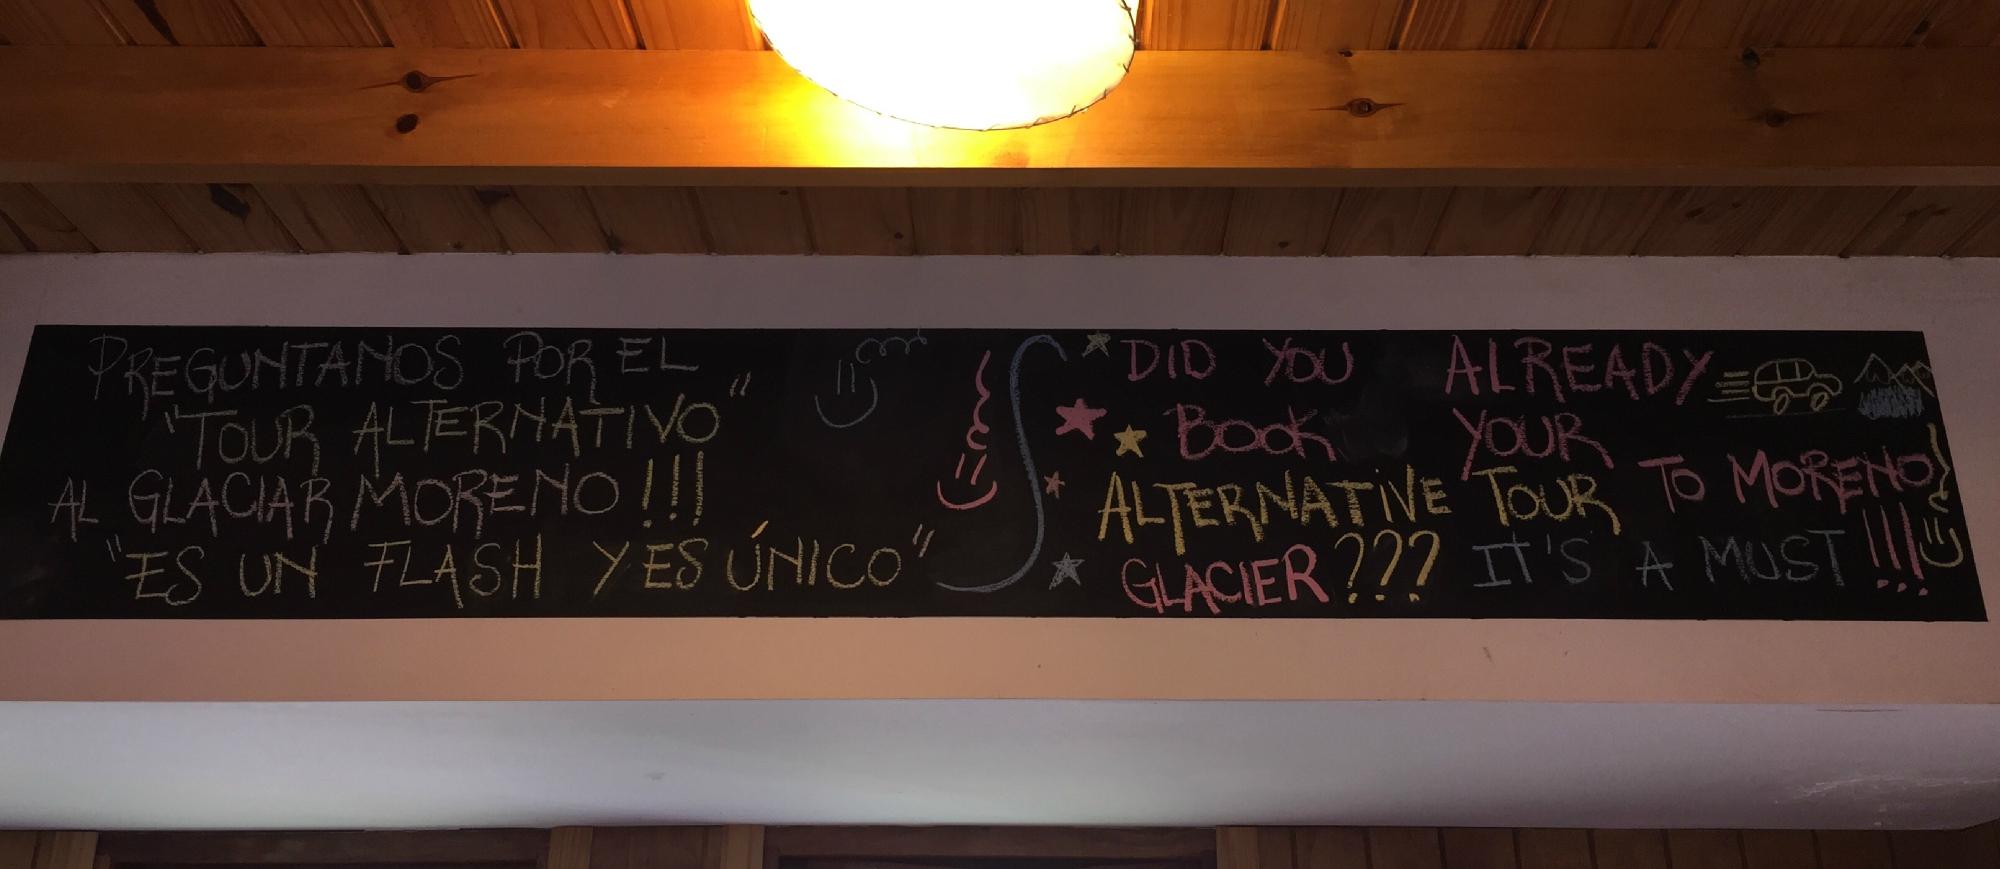 PREGUNTANOS POR EL
"TOUR ALTERNATIVO"
AL GLACIAR MORENO!!!
"ES UN FLASH Y ES ÚNICO"
DID YOU ALREADY
BOOK YOUR
ALTERNATIVE TOUR TO MORENO
GLACIER??? IT'S A MUST!!!